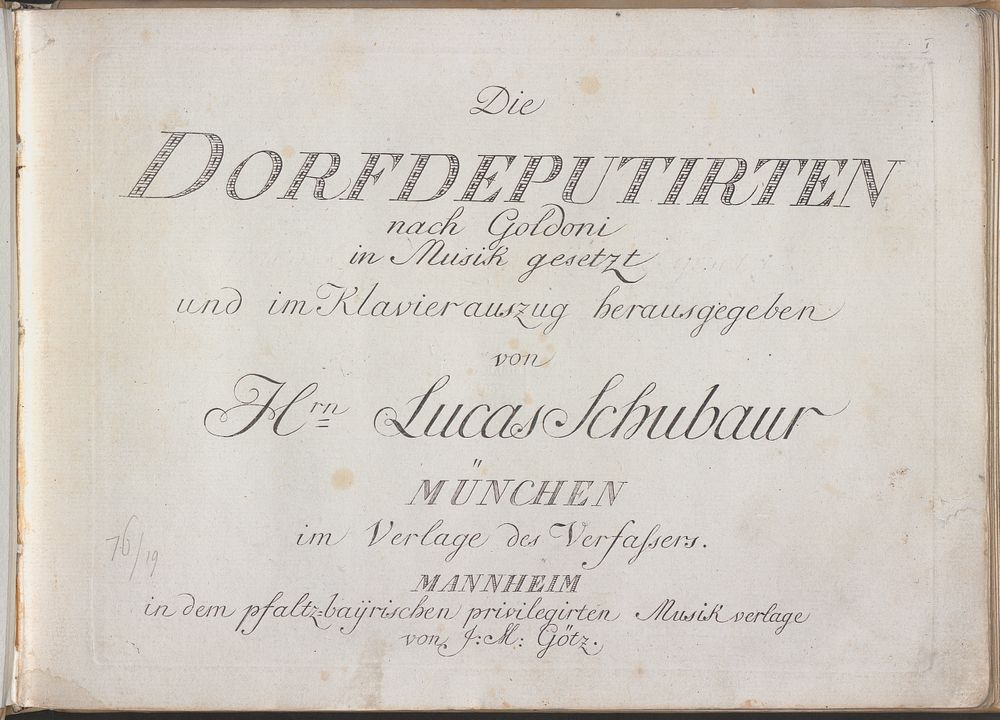 I
Die
DORFDEPUTIRTEN
nach Goldoni
in Musik gesetzt
und im Klavierauszug herausgegeben
von
Hrn Lucas Schubaur
MÜNCHEN
im Verlage des Verfaſsers.
76/19
MANNHEIM
in dem pfaltz-baÿrischen privilegirten Musik verlage
von J: M: Götz.